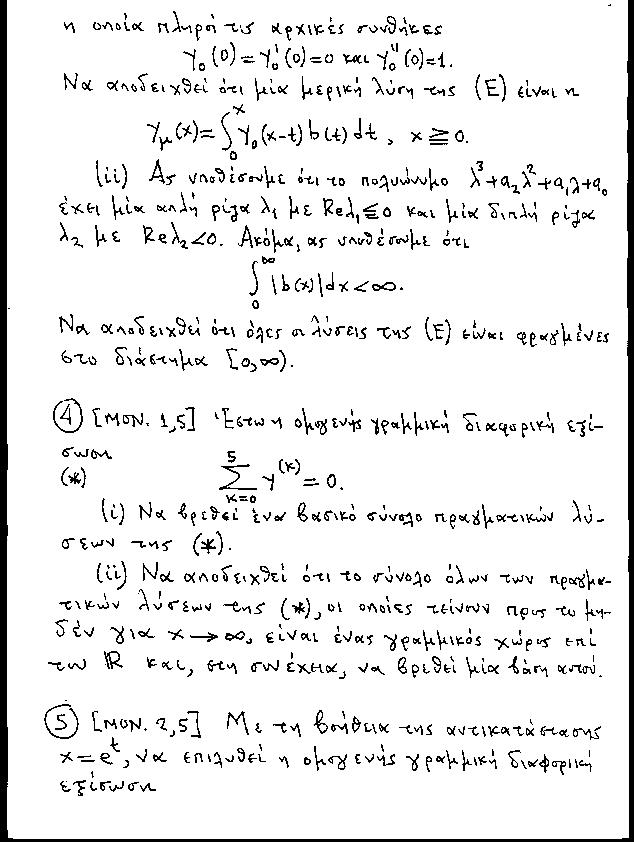 η οποία πληροί τις αρχικές συνθήκες
y₀(0)=y₀'(0)=0 και y₀''(0)=1.
Να αποδειχθεί ότι μία μερική λύση της (E) είναι η
y_μ(x)=∫₀ˣ y₀(x-t)b(t)dt, x≧0.
(ii) Ας υποθέσουμε ότι το πολυώνυμο λ³+a₂λ²+a₁λ+a₀
έχει μία απλή ρίζα λ₁ με Reλ₁≦0 και μία διπλή ρίζα
λ₂ με Reλ₂<0. Ακόμα, ας υποθέσουμε ότι
∫₀^∞ |b(x)|dx<∞.
Να αποδειχθεί ότι όλες οι λύσεις της (E) είναι φραγμένες
στο διάστημα [0,∞).
④ [ΜΟΝ. 1,5] Έστω η ομογενής γραμμική διαφορική εξί-
σωση
(*) Σ_{κ=0}^{5} y^{(κ)} = 0.
(i) Να βρεθεί ένα βασικό σύνολο πραγματικών λύ-
σεων της (*).
(ii) Να αποδειχθεί ότι το σύνολο όλων των πραγμα-
τικών λύσεων της (*), οι οποίες τείνουν προς το μη-
δέν για x→∞, είναι ένας γραμμικός χώρος επί
του ℝ και, στη συνέχεια, να βρεθεί μία βάση αυτού.
⑤ [ΜΟΝ. 2,5] Με τη βοήθεια της αντικατάστασης
x=eᵗ, να επιλυθεί η ομογενής γραμμική διαφορική
εξίσωση